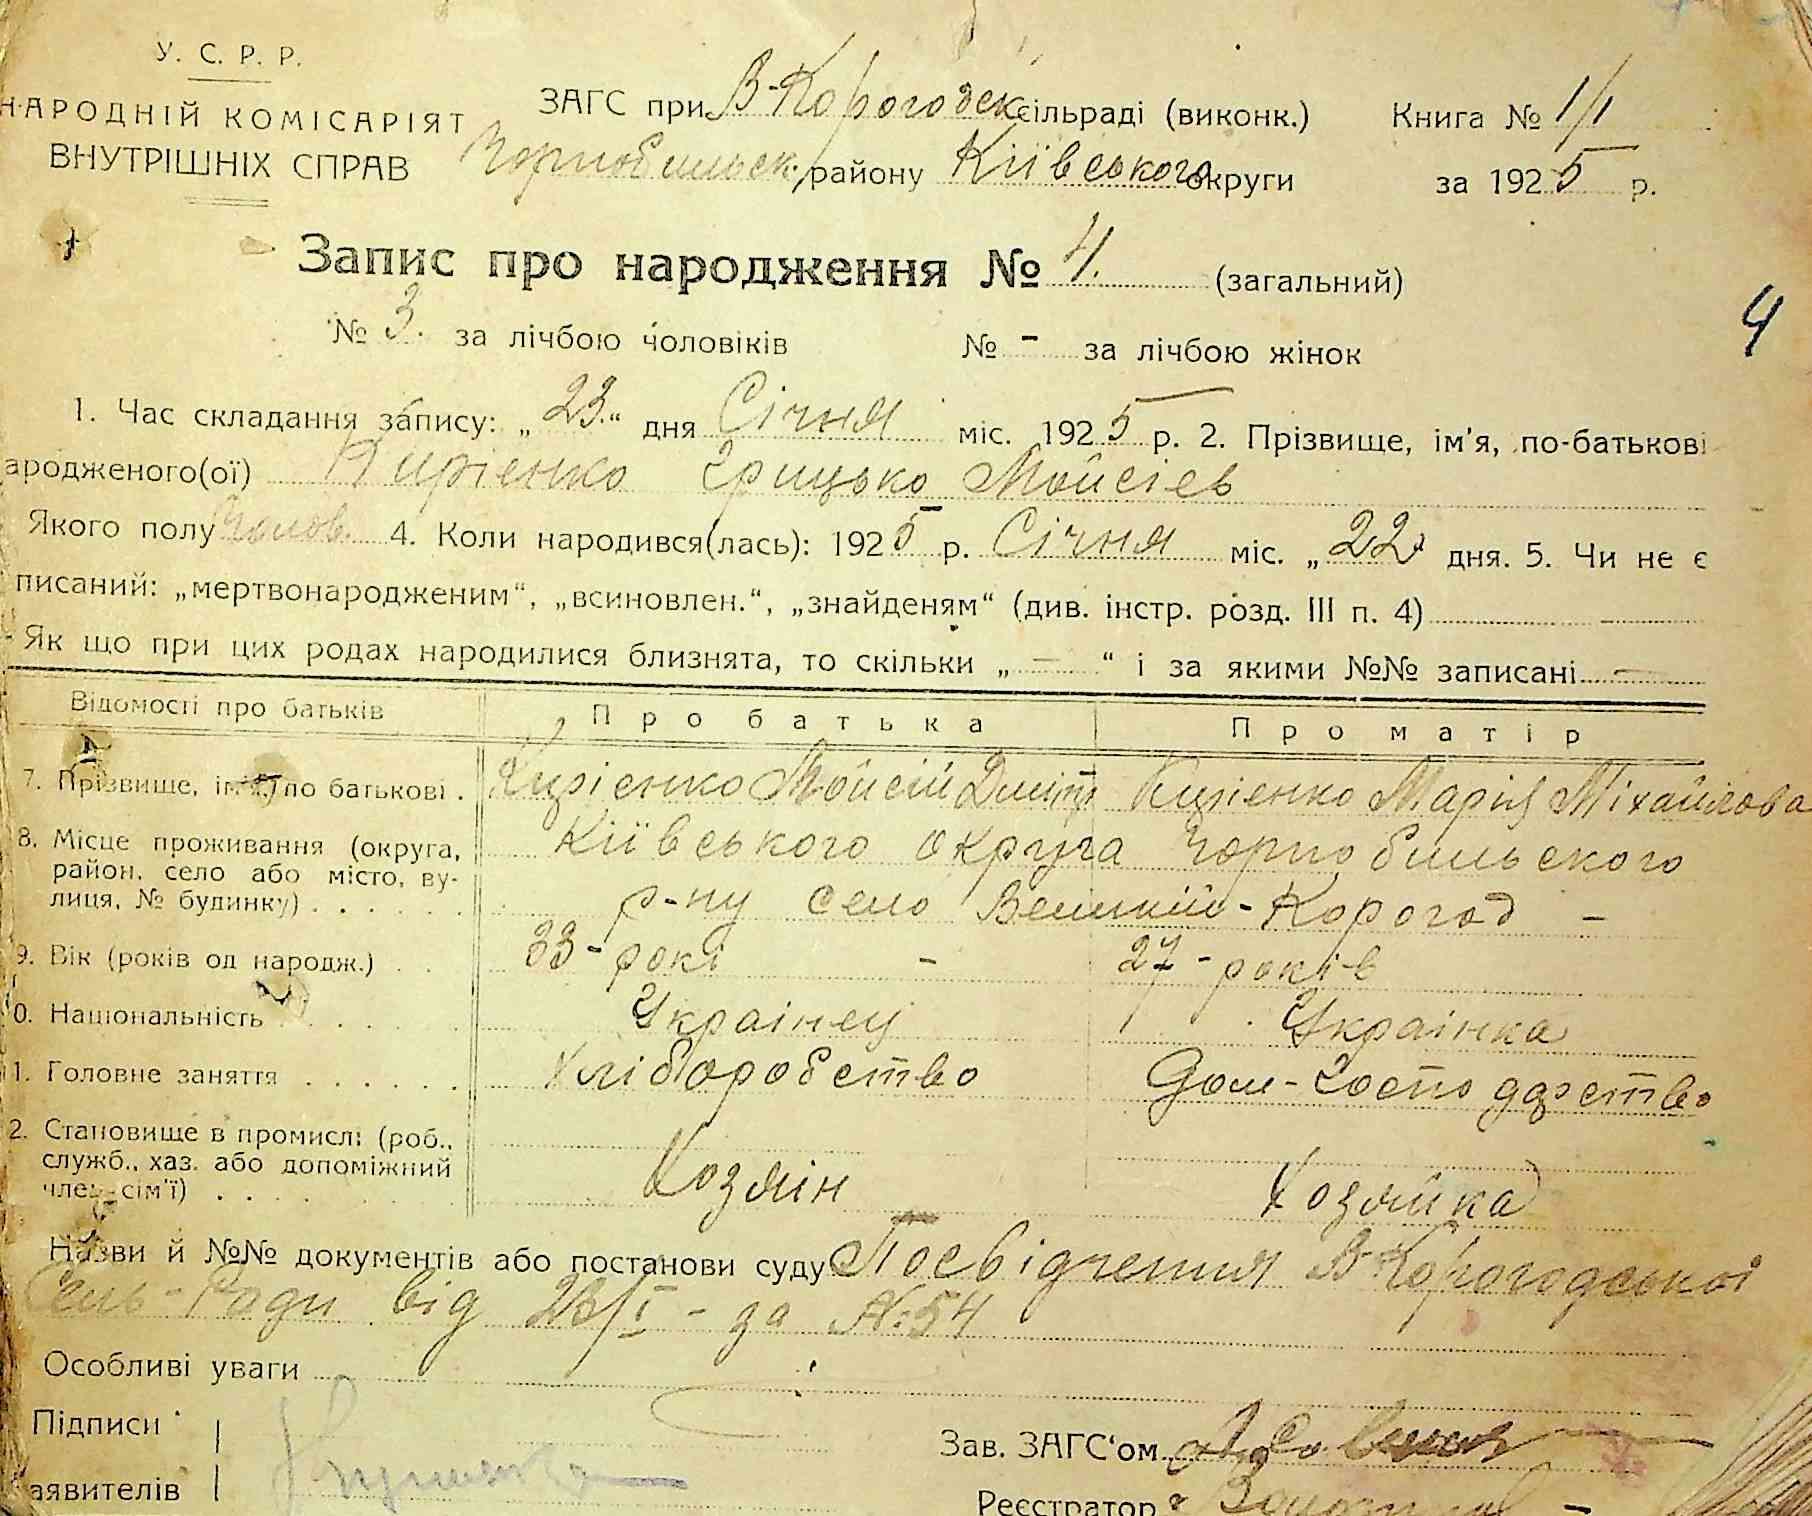 У. С. Р. Р.
НАРОДНІЙ КОМІСАРІЯТ
ВНУТРІШНІХ СПРАВ
ЗАГС при В-Корогодск сільраді (виконк.)
Чорнобильск. району Київського округи
Книга № 1/1
за 1925 р.
Запис про народження № 4. (загальний)
4
№ 3. за лічбою чоловіків № - за лічбою жінок
1. Час складання запису: „23.“ дня Січня міс. 1925 р. 2. Прізвище, ім'я, по-батькові
ародженого(ої) Кирієнко Грицько Мойсієв
Якого полу Чолов. 4. Коли народився(лась): 1925 р. Січня міс. „22 дня. 5. Чи не є
писаний: „мертвонародженим“, „всиновлен.“, „знайденям“ (див. інстр. розд. III п. 4) —
Як що при цих родах народилися близнята, то скільки „ — “ і за якими №№ записані —
Відомості про батьків Про батька Про матір
7. Прізвище, ім'я, по батькові . Кирієнко Мойсій Дмітр Кирієнко Марія Міхайлова
8. Місце проживання (округа, район, село або місто, вулиця, № будинку) Київського округа Чорнобильського
р-ну село Великий-Корогод -
9. Вік (років од народж.) 33 - рокі - 27 - років
0. Національність Украінец Украінка
1. Головне заняття Хліборобство Дом-господарство
2. Становище в промислі (роб., служб., хаз. або допоміжний член сім'ї) Хозяін Хозяйка
Назви й №№ документів або постанови суду Посвідчення В-Корогодської
Сель-Ради від 23/I - за №54
Особливі уваги
Підписи
аявителів
Зав. ЗАГС'ом
Реєстратор